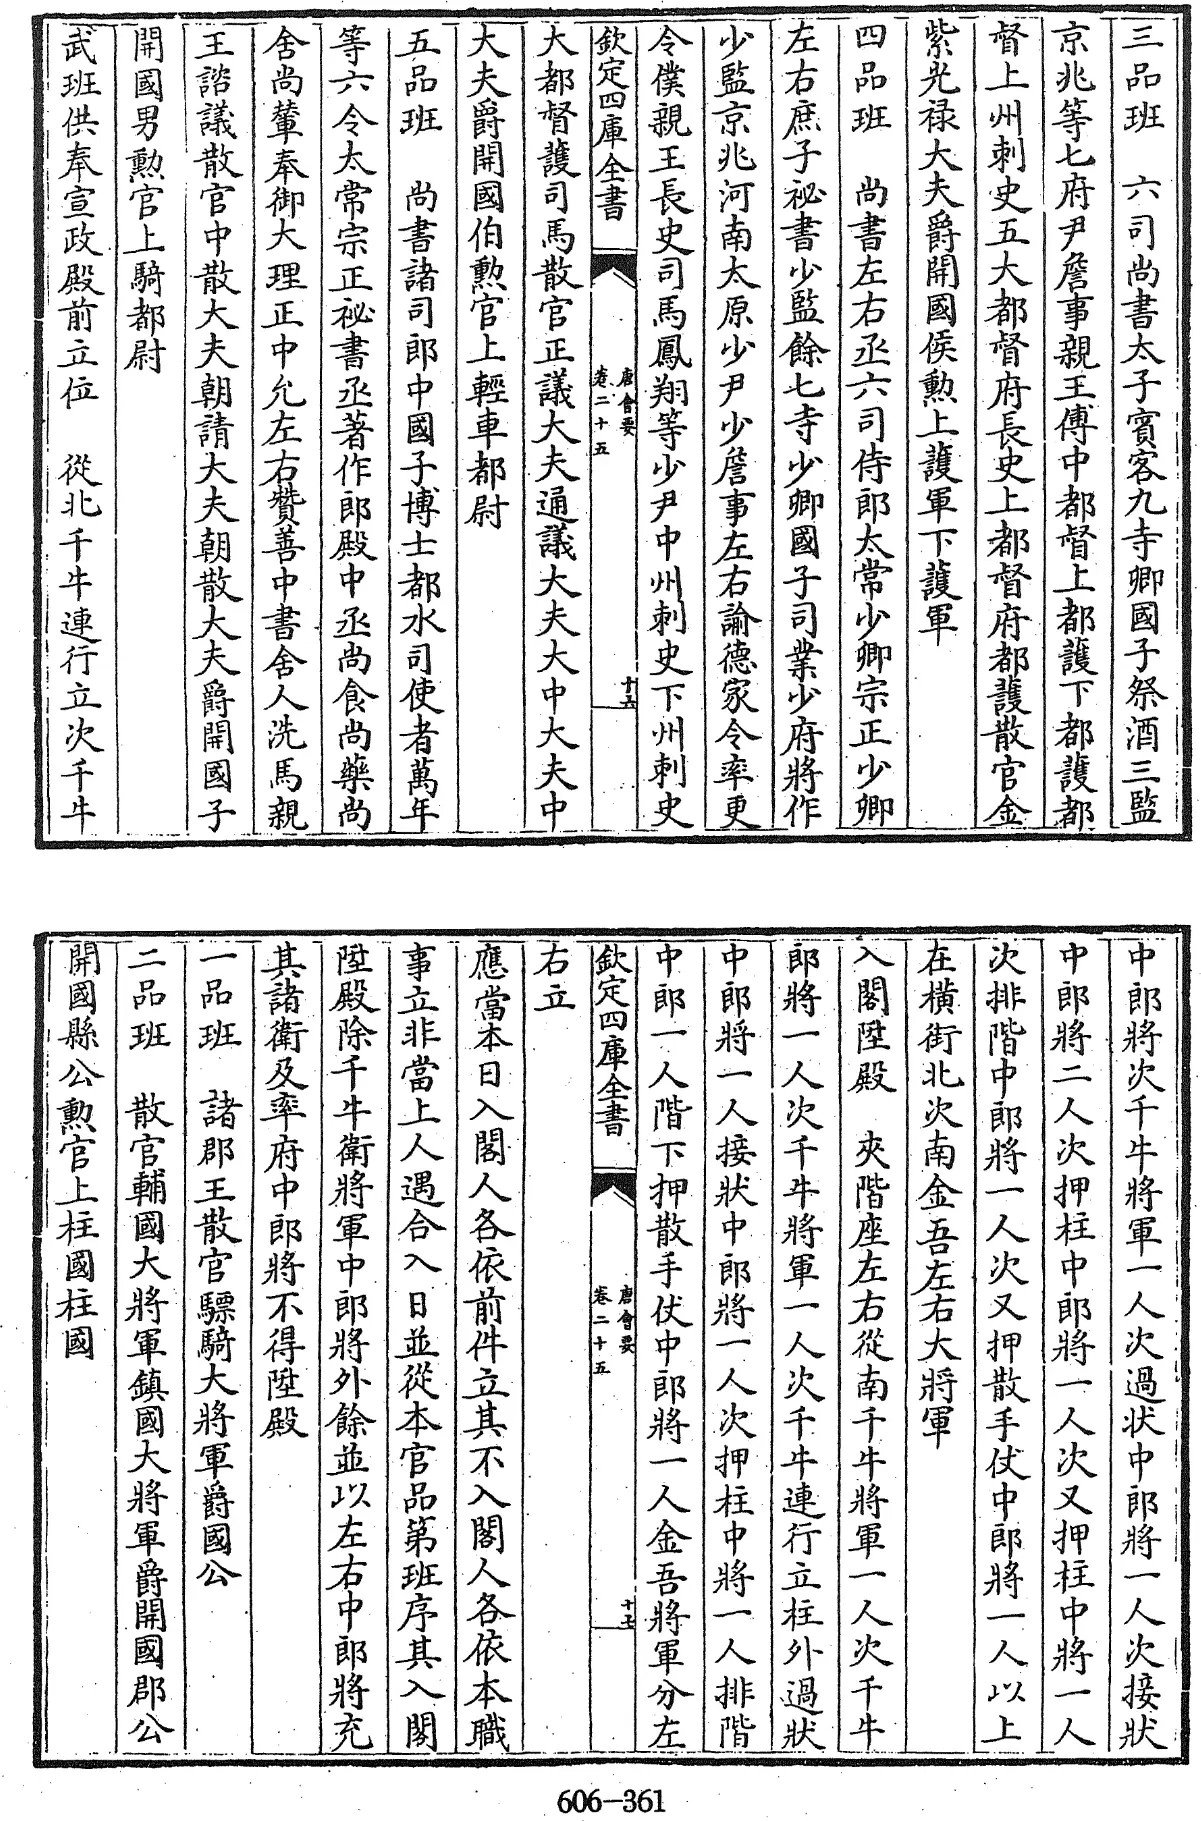 三品班　六司尚書太子賓客九寺卿國子祭酒三監
京兆等七府尹詹事親王傅中都督上都護下都護都
督上州刺史五大都督府長史上都督府都護散官金
紫光祿大夫爵開國侯勲上護軍下護軍
四品班　尚書左右丞六司侍郎太常少卿宗正少卿
左右庶子祕書少監餘七寺少卿國子司業少府將作
少監京兆河南太原少尹少詹事左右諭德家令率更
令僕親王長史司馬鳳翔等少尹中州刺史下州刺史
欽定四庫全書
唐會要
卷二十五
十六
大都督護司馬散官正議大夫通議大夫大中大夫中
大夫爵開國伯勲官上輕車都尉
五品班　尚書諸司郎中國子博士都水司使者萬年
等六令太常宗正祕書丞著作郎殿中丞尚食尚藥尚
舍尚輦奉御大理正中允左右贊善中書舍人洗馬親
王諮議散官中散大夫朝請大夫朝散大夫爵開國子
開國男勲官上騎都尉
武班供奉宣政殿前立位　從北千牛連行立次千牛
中郎將次千牛將軍一人次過狀中郎將一人次接狀
中郎將二人次押柱中郎將一人次又押柱中將一人
次排階中郎將一人次又押散手仗中郎將一人以上
在橫街北次南金吾左右大將軍
入閣陞殿　夾階座左右從南千牛將軍一人次千牛
郎將一人次千牛將軍一人次千牛連行立柱外過狀
中郎將一人接狀中郎將一人次押柱中將一人排階
中郎一人階下押散手仗中郎將一人金吾將軍分左
欽定四庫全書
唐會要
卷二十五
十七
右立
應當本日入閣人各依前件立其不入閣人各依本職
事立非當上人遇合入日並從本官品第班序其入閣
陞殿除千牛衛將軍中郎將外餘並以左右中郎將充
其諸衛及率府中郎將不得陞殿
一品班　諸郡王散官驃騎大將軍爵國公
二品班　散官輔國大將軍鎮國大將軍爵開國郡公
開國縣公勲官上柱國柱國
606-361